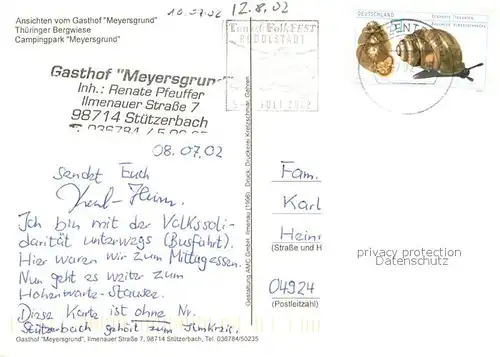 Ansichten vom Gasthof "Meyersgrund"
Thüringer Bergwiese
Campingpark "Meyersgrund"
10.07.02
12.8.02
Tanz&FolkFEST
RUDOLSTADT
JULI 2002
DEUTSCHLAND
Gasthof "Meyersgrund"
Inh.: Renate Pfeuffer
Ilmenauer Straße 7
98714 Stützerbach
08.07.02
sendet Euch
Karl-Heinz.
Ich bin mit der Volkssoli-
darität unterwegs (Busfahrt).
Hier waren wir zum Mittagessen.
Nun geht es weiter zum
Hohenwarte-Stausee.
Diese Karte ist ohne Nr.
Stützerbach gehört zum Ilmkreis.
Gasthof "Meyersgrund", Ilmenauer Straße 7, 98714 Stützerbach, Tel. 036784/50235
Gestaltung AMC GmbH, Ilmenau (1996) Druck: Druckerei Kretzschmar, Gehren
Fam.
Karl
Hein
(Straße und H
privacy protection
Datenschutz
04924
(Postleitzahl)